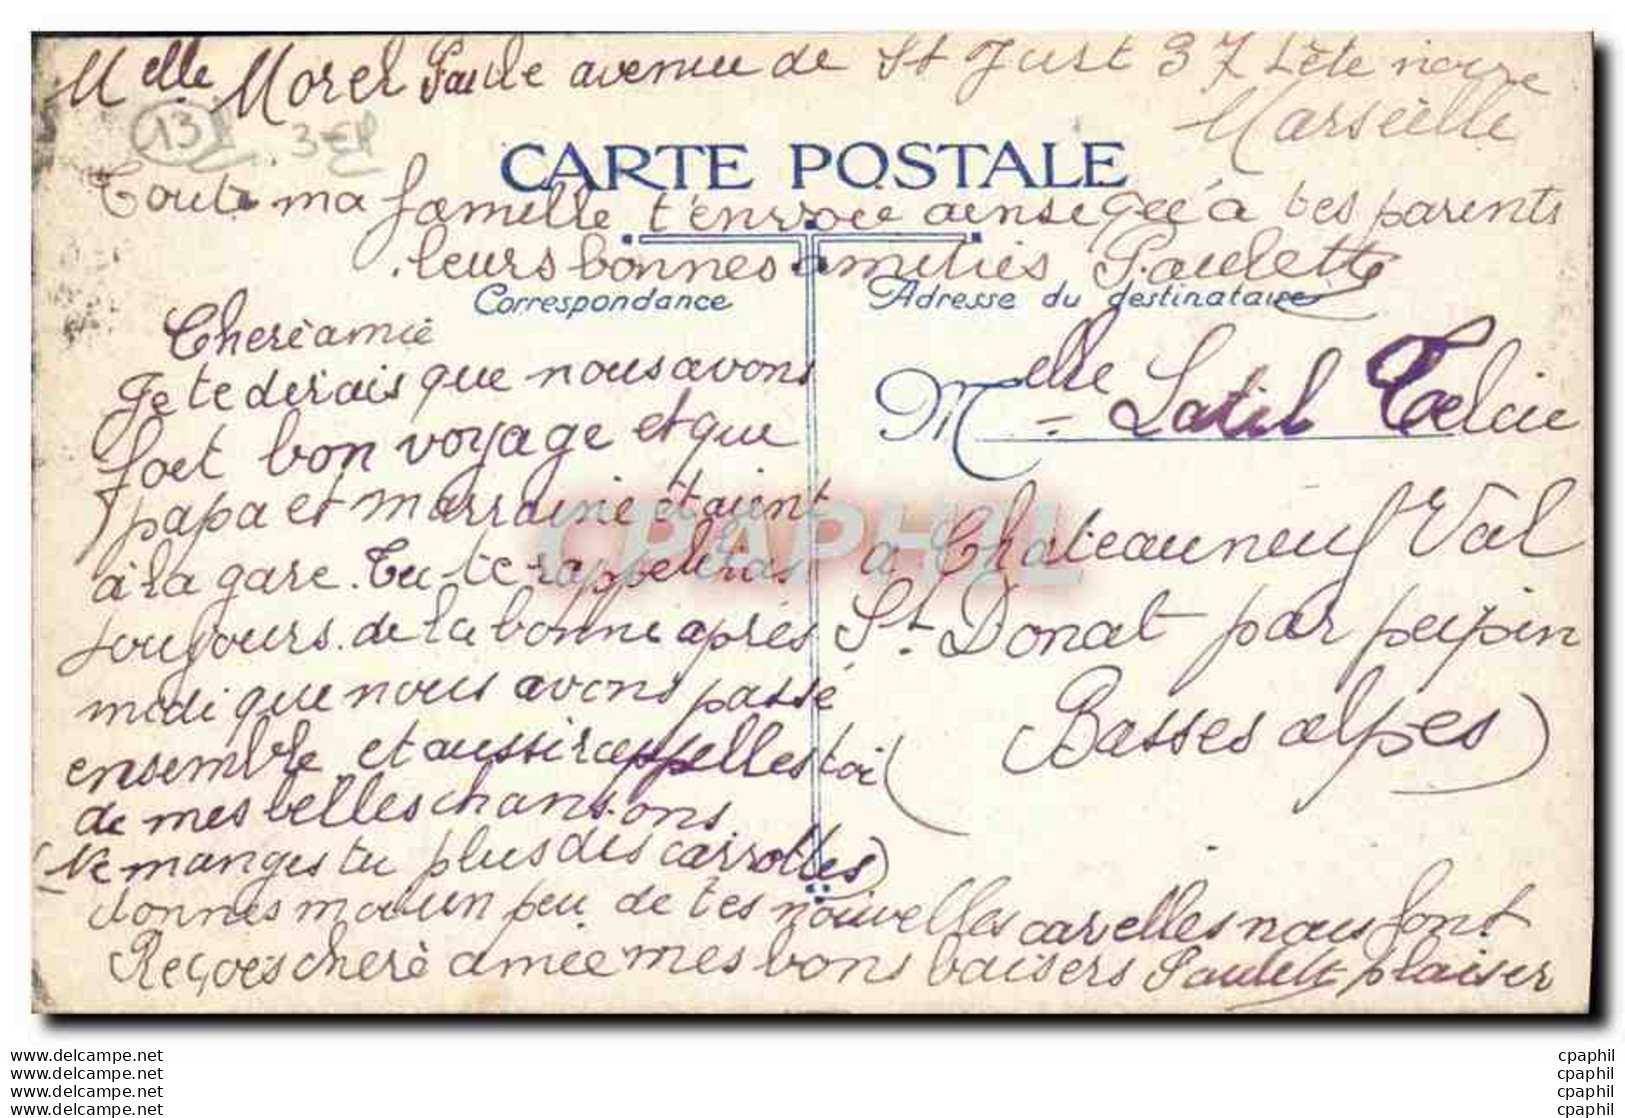 Melle Morel Paule avenue de St Just 37 tète noire
Marseille
13
3 EP
CARTE POSTALE
Toute ma famille t'envoie ainsi qu'à tes parents
leurs bonnes amitiés Paulette
Correspondance
Adresse du destinataire
Cherè amie
Je te dirais que nous avons
fait bon voyage et que
papa et marraine étaient
à la gare. Tu te rappelleras
toujours de la bonne après
midi que nous avons passé
ensemble et aussi rappelles toi
de mes belles chansons
(Ne manges tu plus des carrottes)
donnes moi un peu de tes nouvelles car elles nous font
plaiser
Reçois cherè amie mes bons baisers Paulette
Melle Latil
à Chateauneuf Val
St. Donat par peipin
(Basses alpes)
CPAPHIL
www.delcampe.net
www.delcampe.net
www.delcampe.net
www.delcampe.net
cpaphil
cpaphil
cpaphil
cpaphil